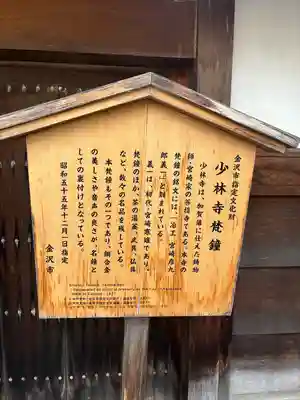 金沢市指定文化財
少林寺梵鐘
少林寺は、加賀藩に仕えた鋳物
師・宮崎家の菩提寺である。本寺の
梵鐘の銘文には、「冶工 宮崎彦九
郎義一」と刻まれている。
義一は、初代・宮崎寒雉であり、
梵鐘のほか、茶の湯釜、武具、仏具
など、数々の名品を残している。
本梵鐘もその一つであり、銅合金
の美しさや音声の良さが、名鐘と
しての裏付けとなっている。
昭和五十五年十二月一日指定
金沢市